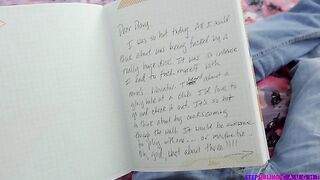 Dear Diary,
I was so hot today. All I could
think about was being fucked by a
really huge dick. It was so intense
I had to touch myself with
mom's vibrator. I heard about a
glory hole at a club. I'd love to
go and check it out. It's so hot
to think about big cocks coming
through the wall. It would be awesome
to play with one.... or maybe two.
Oh, god, what about three!!!!
STEPSIBLINGSCAUGHT